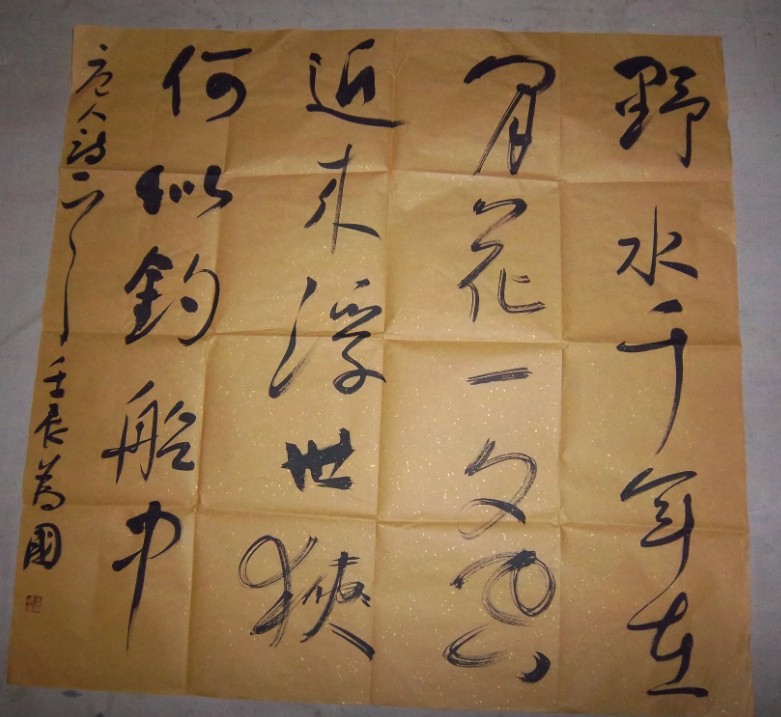 野水千年在
閒花一夕空
近来浮世狹
何似釣船中
唐人詩一首 壬辰為國